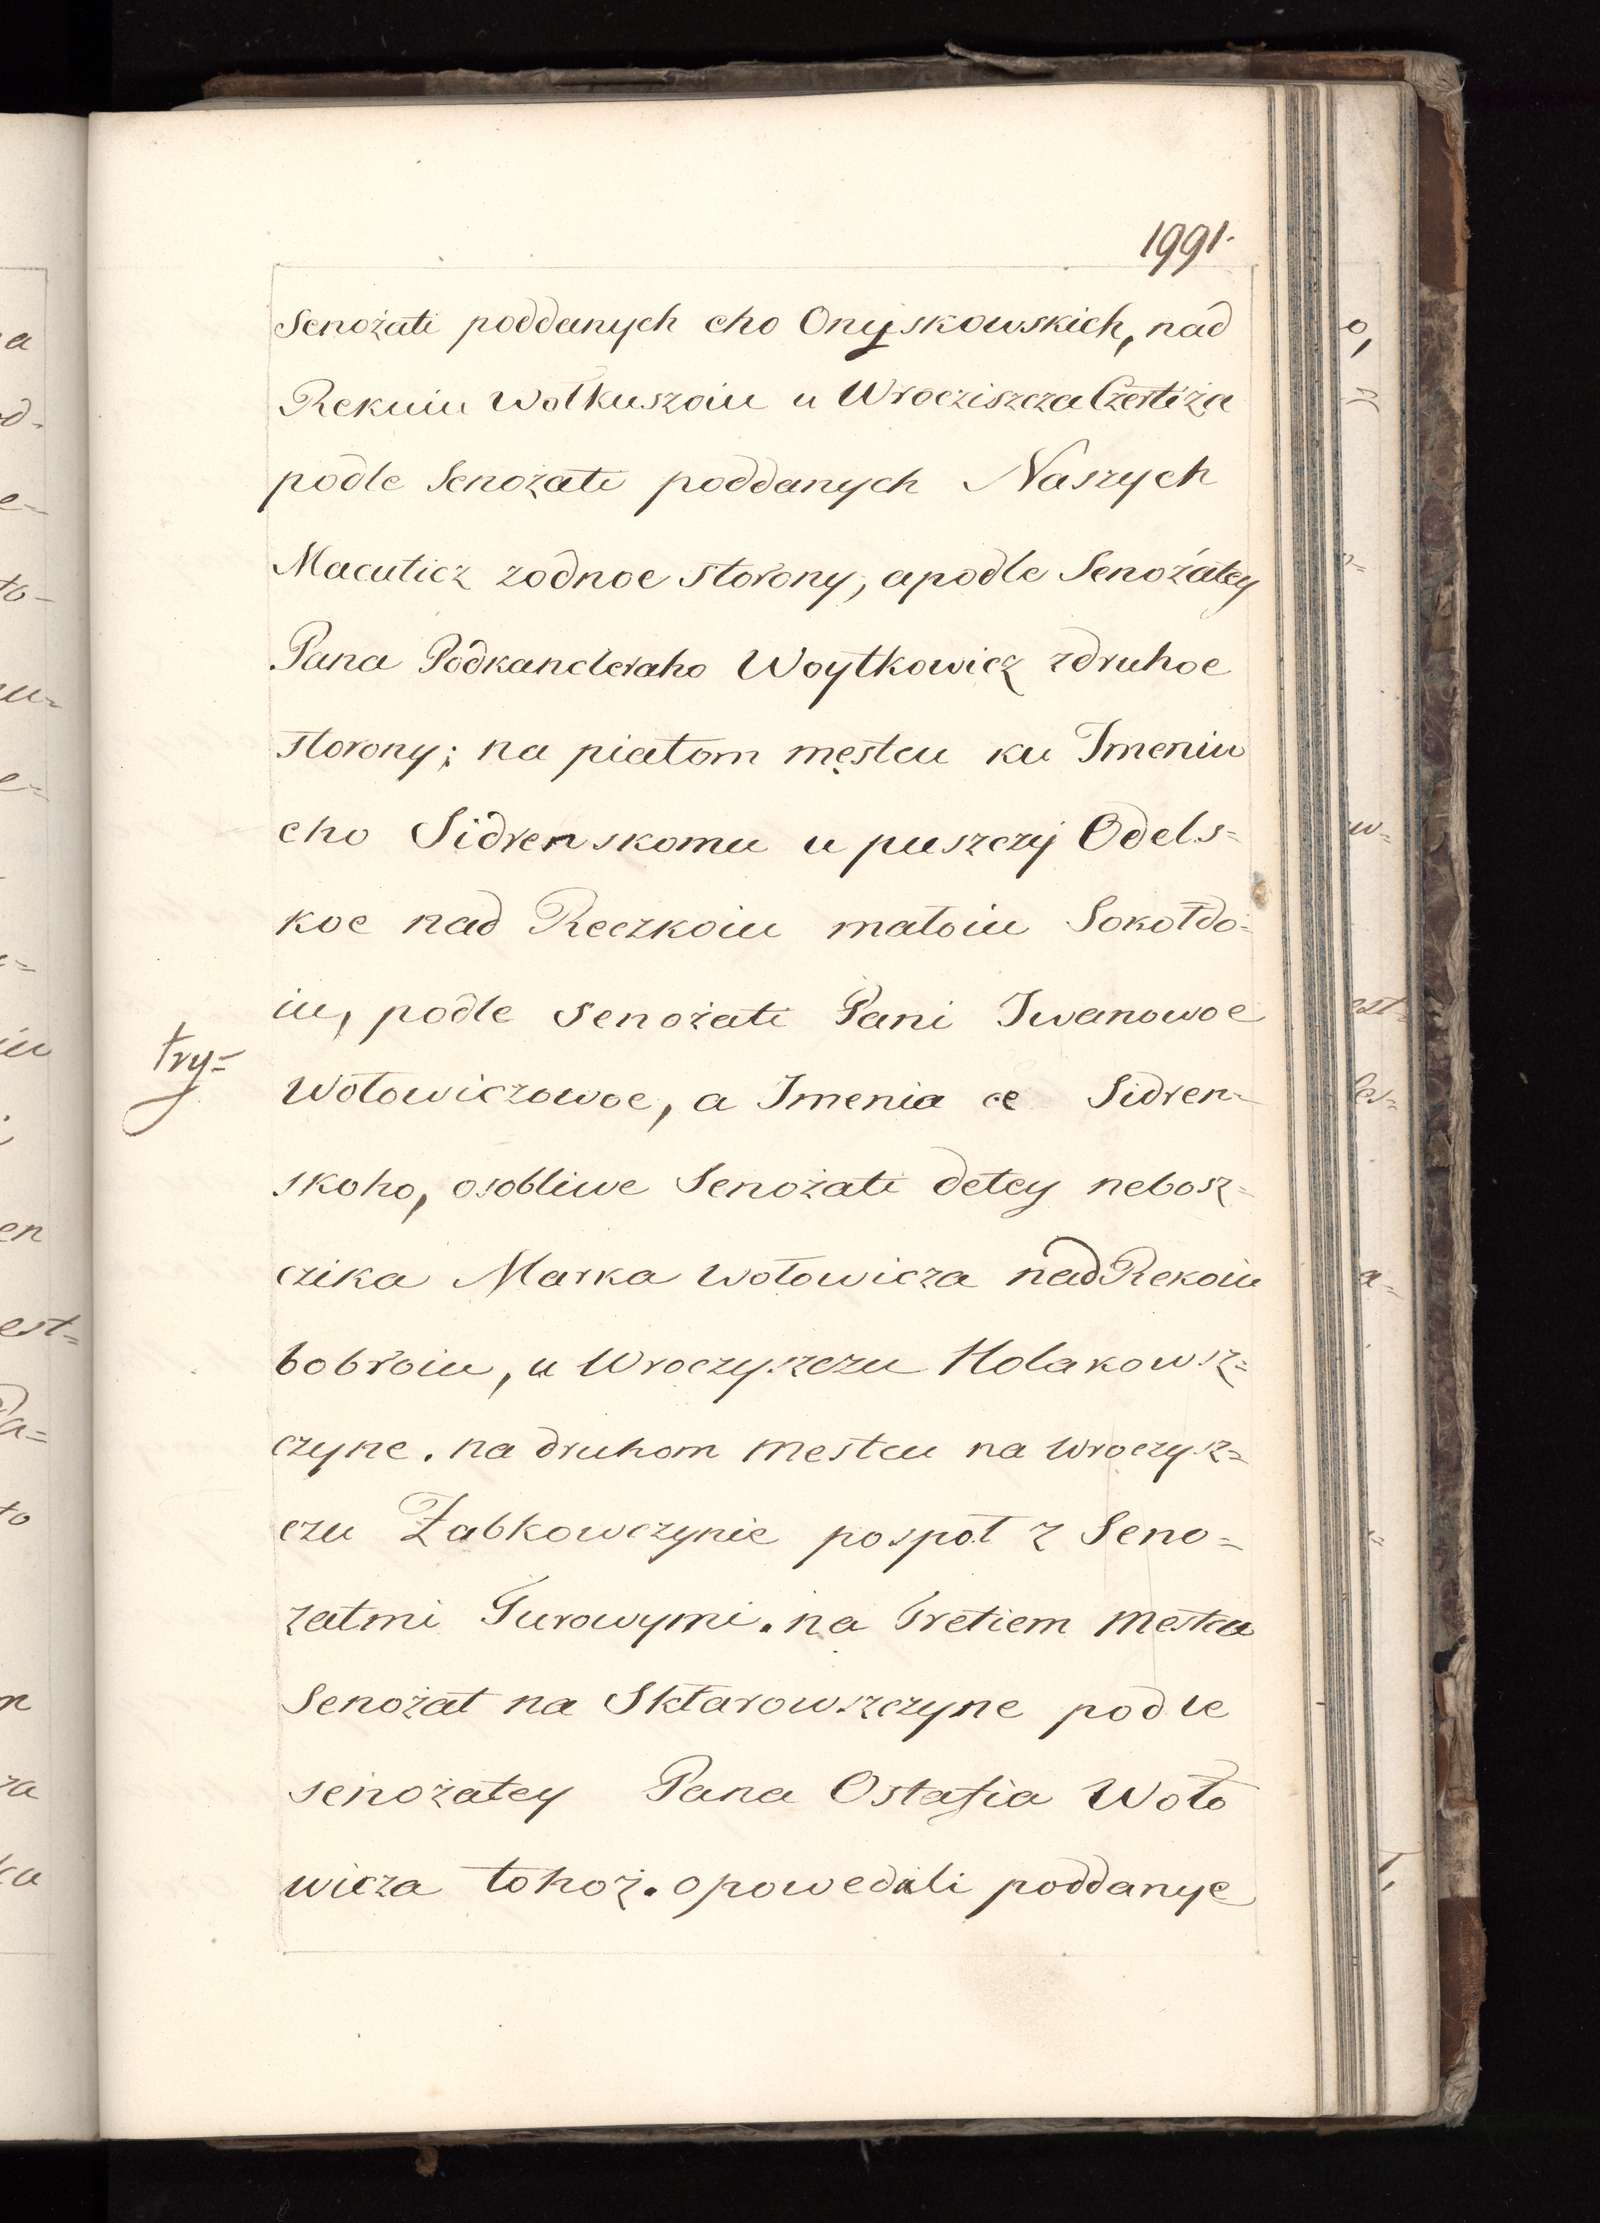 1991.
Senożati poddanych eho Onyskowskich, nad
Rekuiu Wołkuszoiu u Wrocziszcza Czertiża
podle Senożati poddanych Naszych
Macuticz zodnoe storony, apodle Senożatey
Pana Podkancleraho Woytkowicz zdruhoe
storony; na piatom męstcu ku Imeniu
eho Sidrenskomu u puszczy Odels=
koe nad Reczkoiu małoiu Sokołdo=
iu, podle Senożati Pani Iwanowoe
try=
Wołowiczowoe, a Imenia ee Sidren=
skoho, osobliwe Senożati detey nebosz=
czika Marka Wołowicza nad Rekoiu
bobroiu, u Wroczyszczu Holakowsz=
czyne. na druhom mestcu na wroczysz=
czu Żabkowczynie pospoł z Seno=
żatmi Turowymi. na tretiem mestcu
Senożat na Skłarowszczyne podle
senożatey Pana Ostafia Woło
wicza tohoż. opowedali poddanye